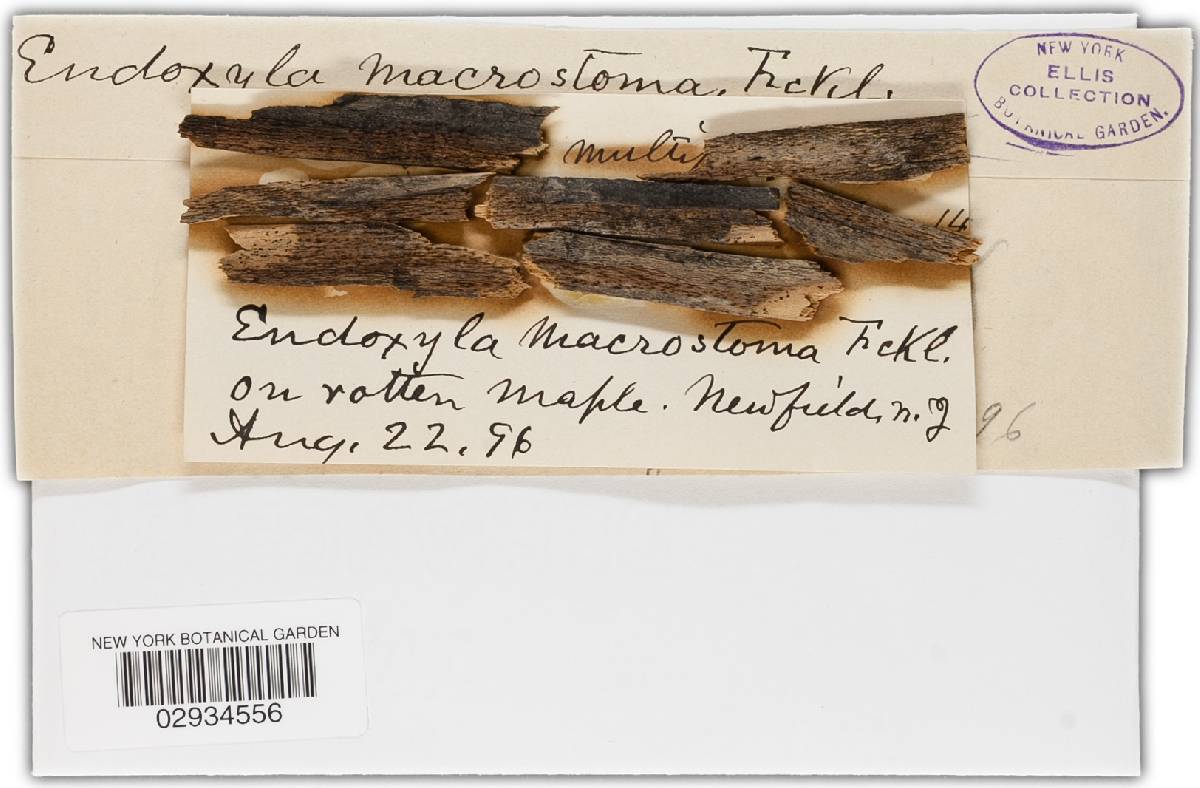 Endoxyla macrostoma. Fckl.
NEW YORK
ELLIS
COLLECTION
BOTANICAL GARDEN.
14
Endoxyla macrostoma Fckl.
on rotten maple. Newfield, N.J
Aug. 22, 96
96
NEW YORK BOTANICAL GARDEN
02934556